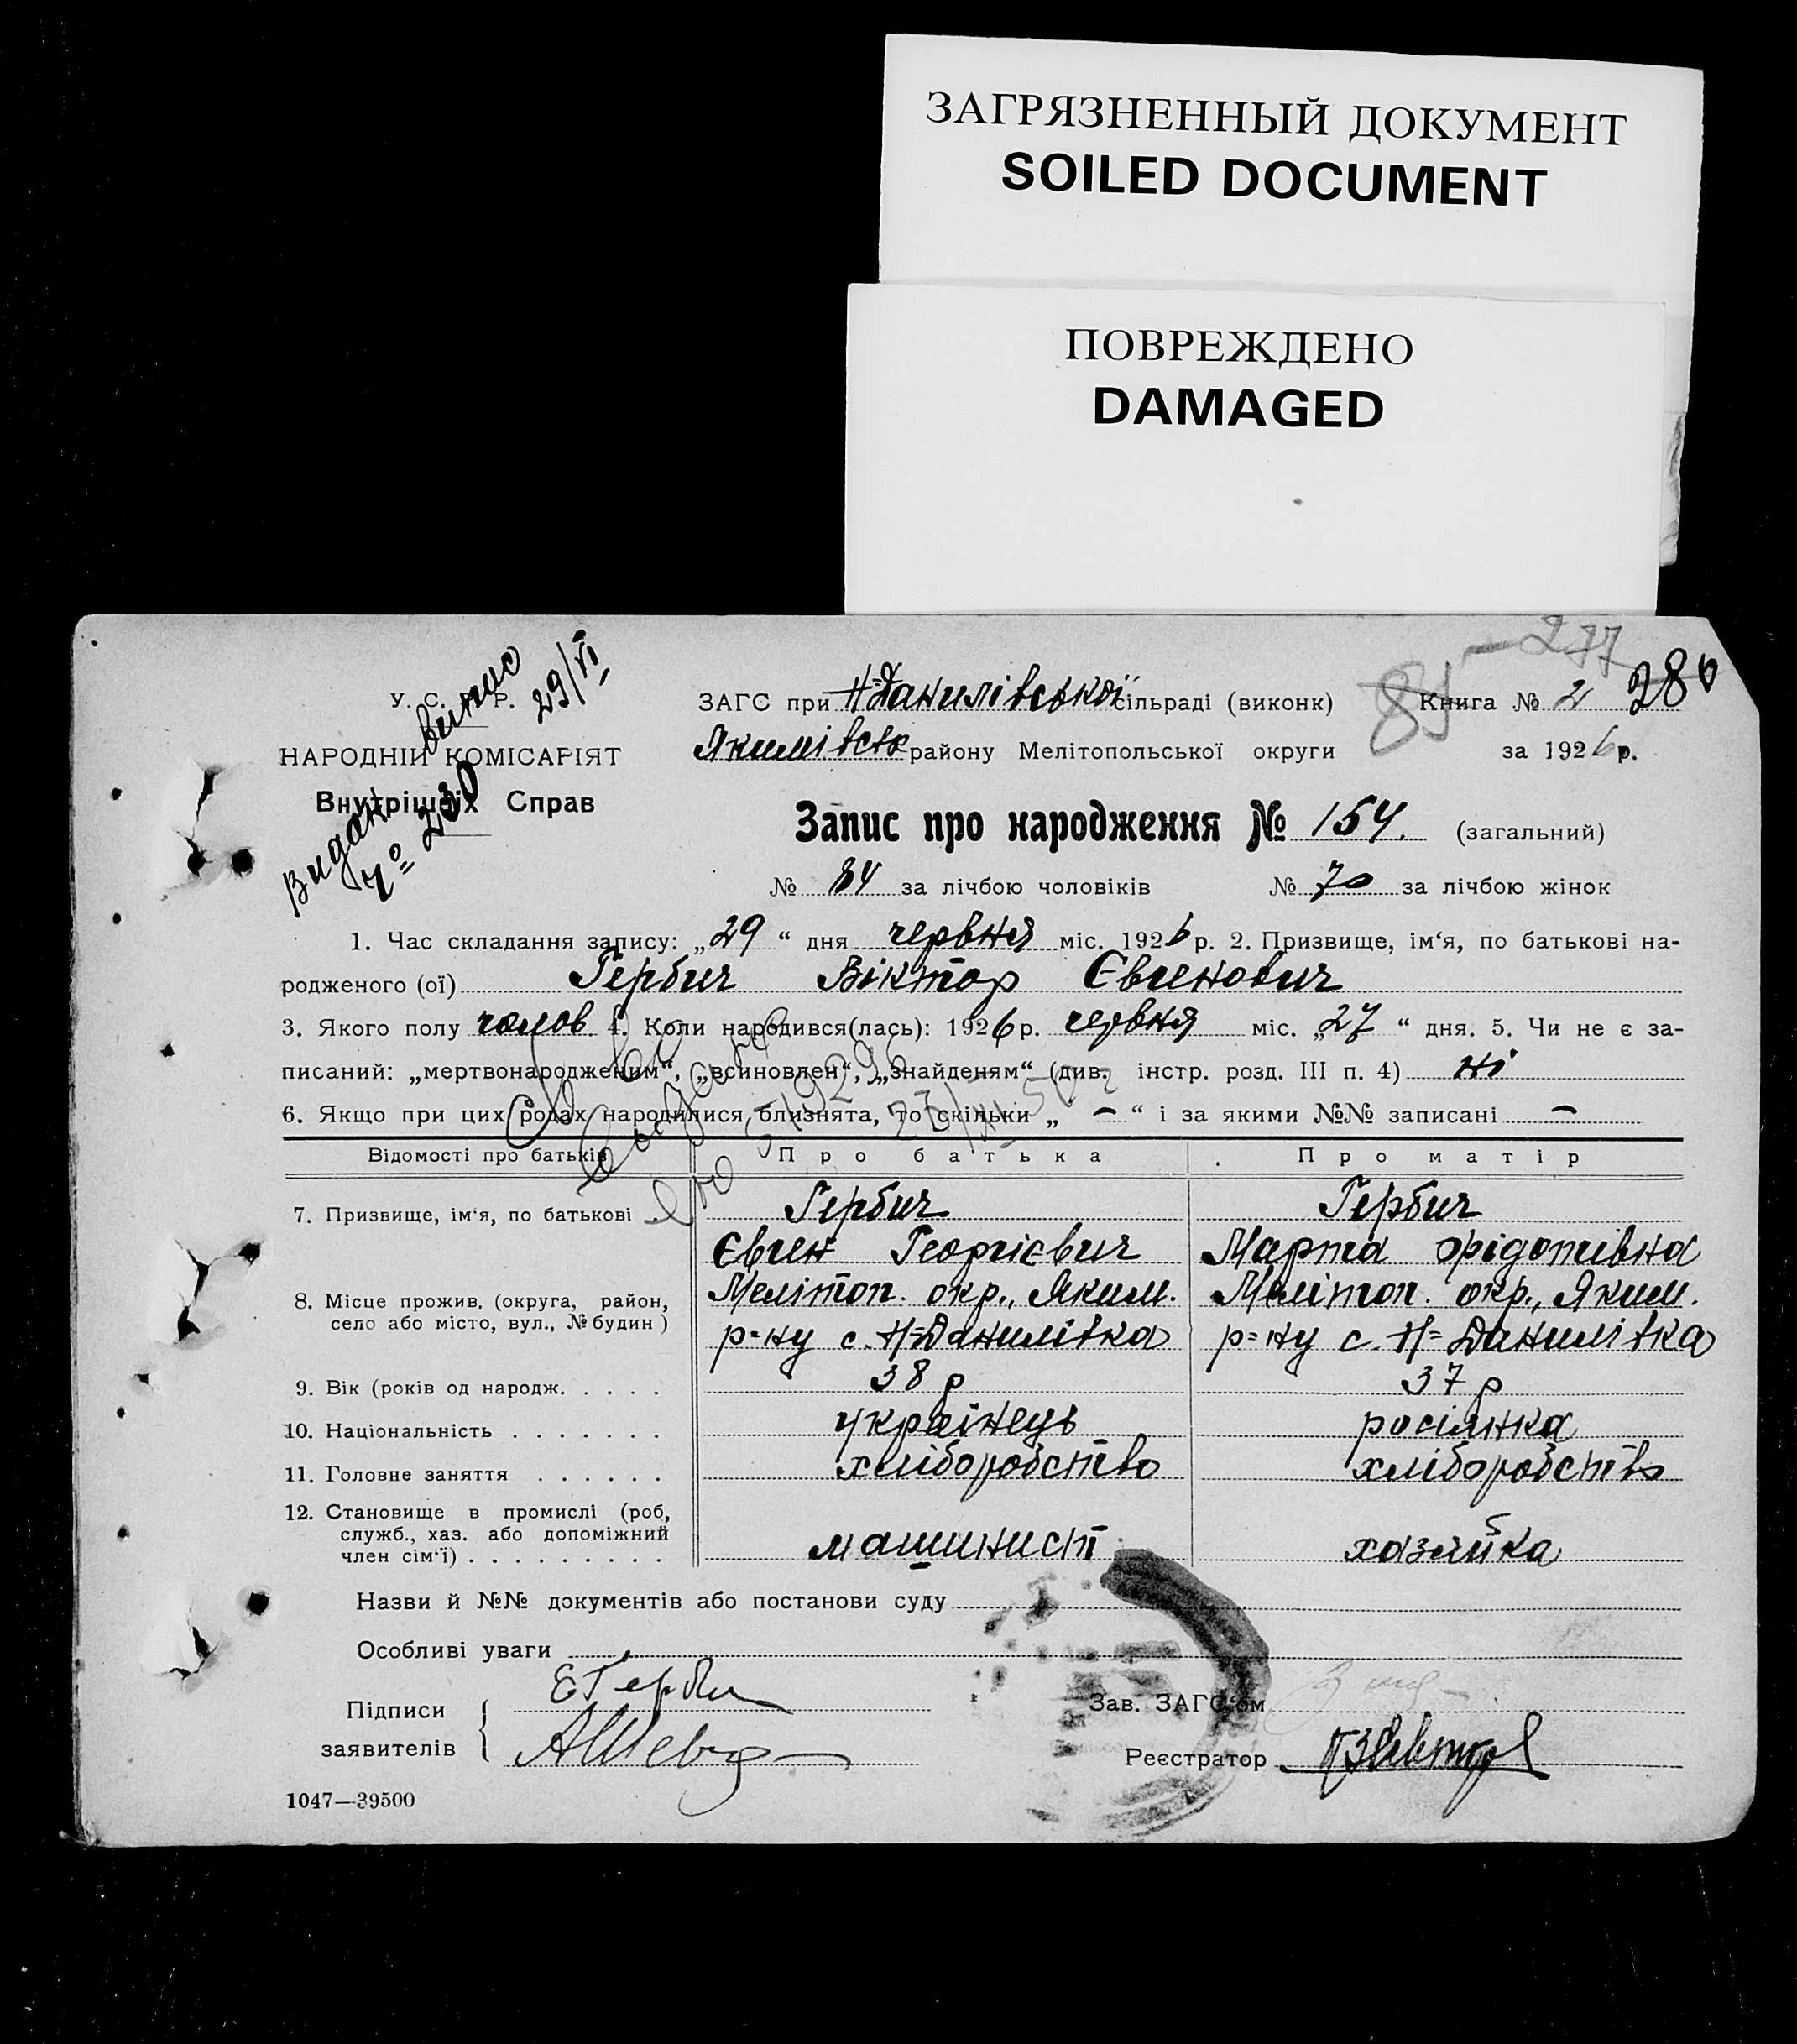 ЗАГРЯЗНЕННЫЙ ДОКУМЕНТ
SOILED DOCUMENT
ПОВРЕЖДЕНО
DAMAGED
277
280
84
У. С. Р. Р.
НАРОДНІЙ КОМІСАРІЯТ
Внутрішніх Справ
Видан випис
№ 230 29/VI
ЗАГС при Н=Данилівської сільраді (виконк) Книга № 2
Якимівськ району Мелітопольської округи за 1926 р.
Запис про народження № 154. (загальний)
№ 84 за лічбою чоловіків № 70 за лічбою жінок
1. Час складання запису: „29“ дня червня міс. 1926 р. 2. Призвище, ім‘я, по батькові на-
родженого (ої) Гербич Віктор Євгенович
3. Якого полу чолов 4. Коли народився(лась): 1926 р. червня міс. „27“ дня. 5. Чи не є за-
писаний: „мертвонародженим“, „всиновлен“, „знайденям“ (див. інстр. розд. III п. 4) ні
6. Якщо при цих родах народилися близнята, то скільки „ — “ і за якими №№ записані —
Відомості про батьків Про батька Про матір
7. Призвище, ім‘я, по батькові Гербич Гербич
Євген Георгієвич Марта
8. Місце прожив. (округа, район, Меліпоп. окр., Яким. Меліпоп. окр., Яким.
село або місто, вул., № будин) р=ну с. Н=Данилівка р=ну с. Н=Данилівка
9. Вік (років од народж. . . . . 38 р 37 р
10. Національність . . . . . . . українець росіянка
11. Головне заняття . . . . . . хліборобство хліборобство
12. Становище в промислі (роб,
служб., хаз. або допоміжний
член сім‘ї) . . . . . . . . . машинист хазяйка
Назви й №№ документів або постанови суду
Особливі уваги
Підписи
заявителів
ЕГерби
Зав. ЗАГС‘ом
Реєстратор
1047—39500